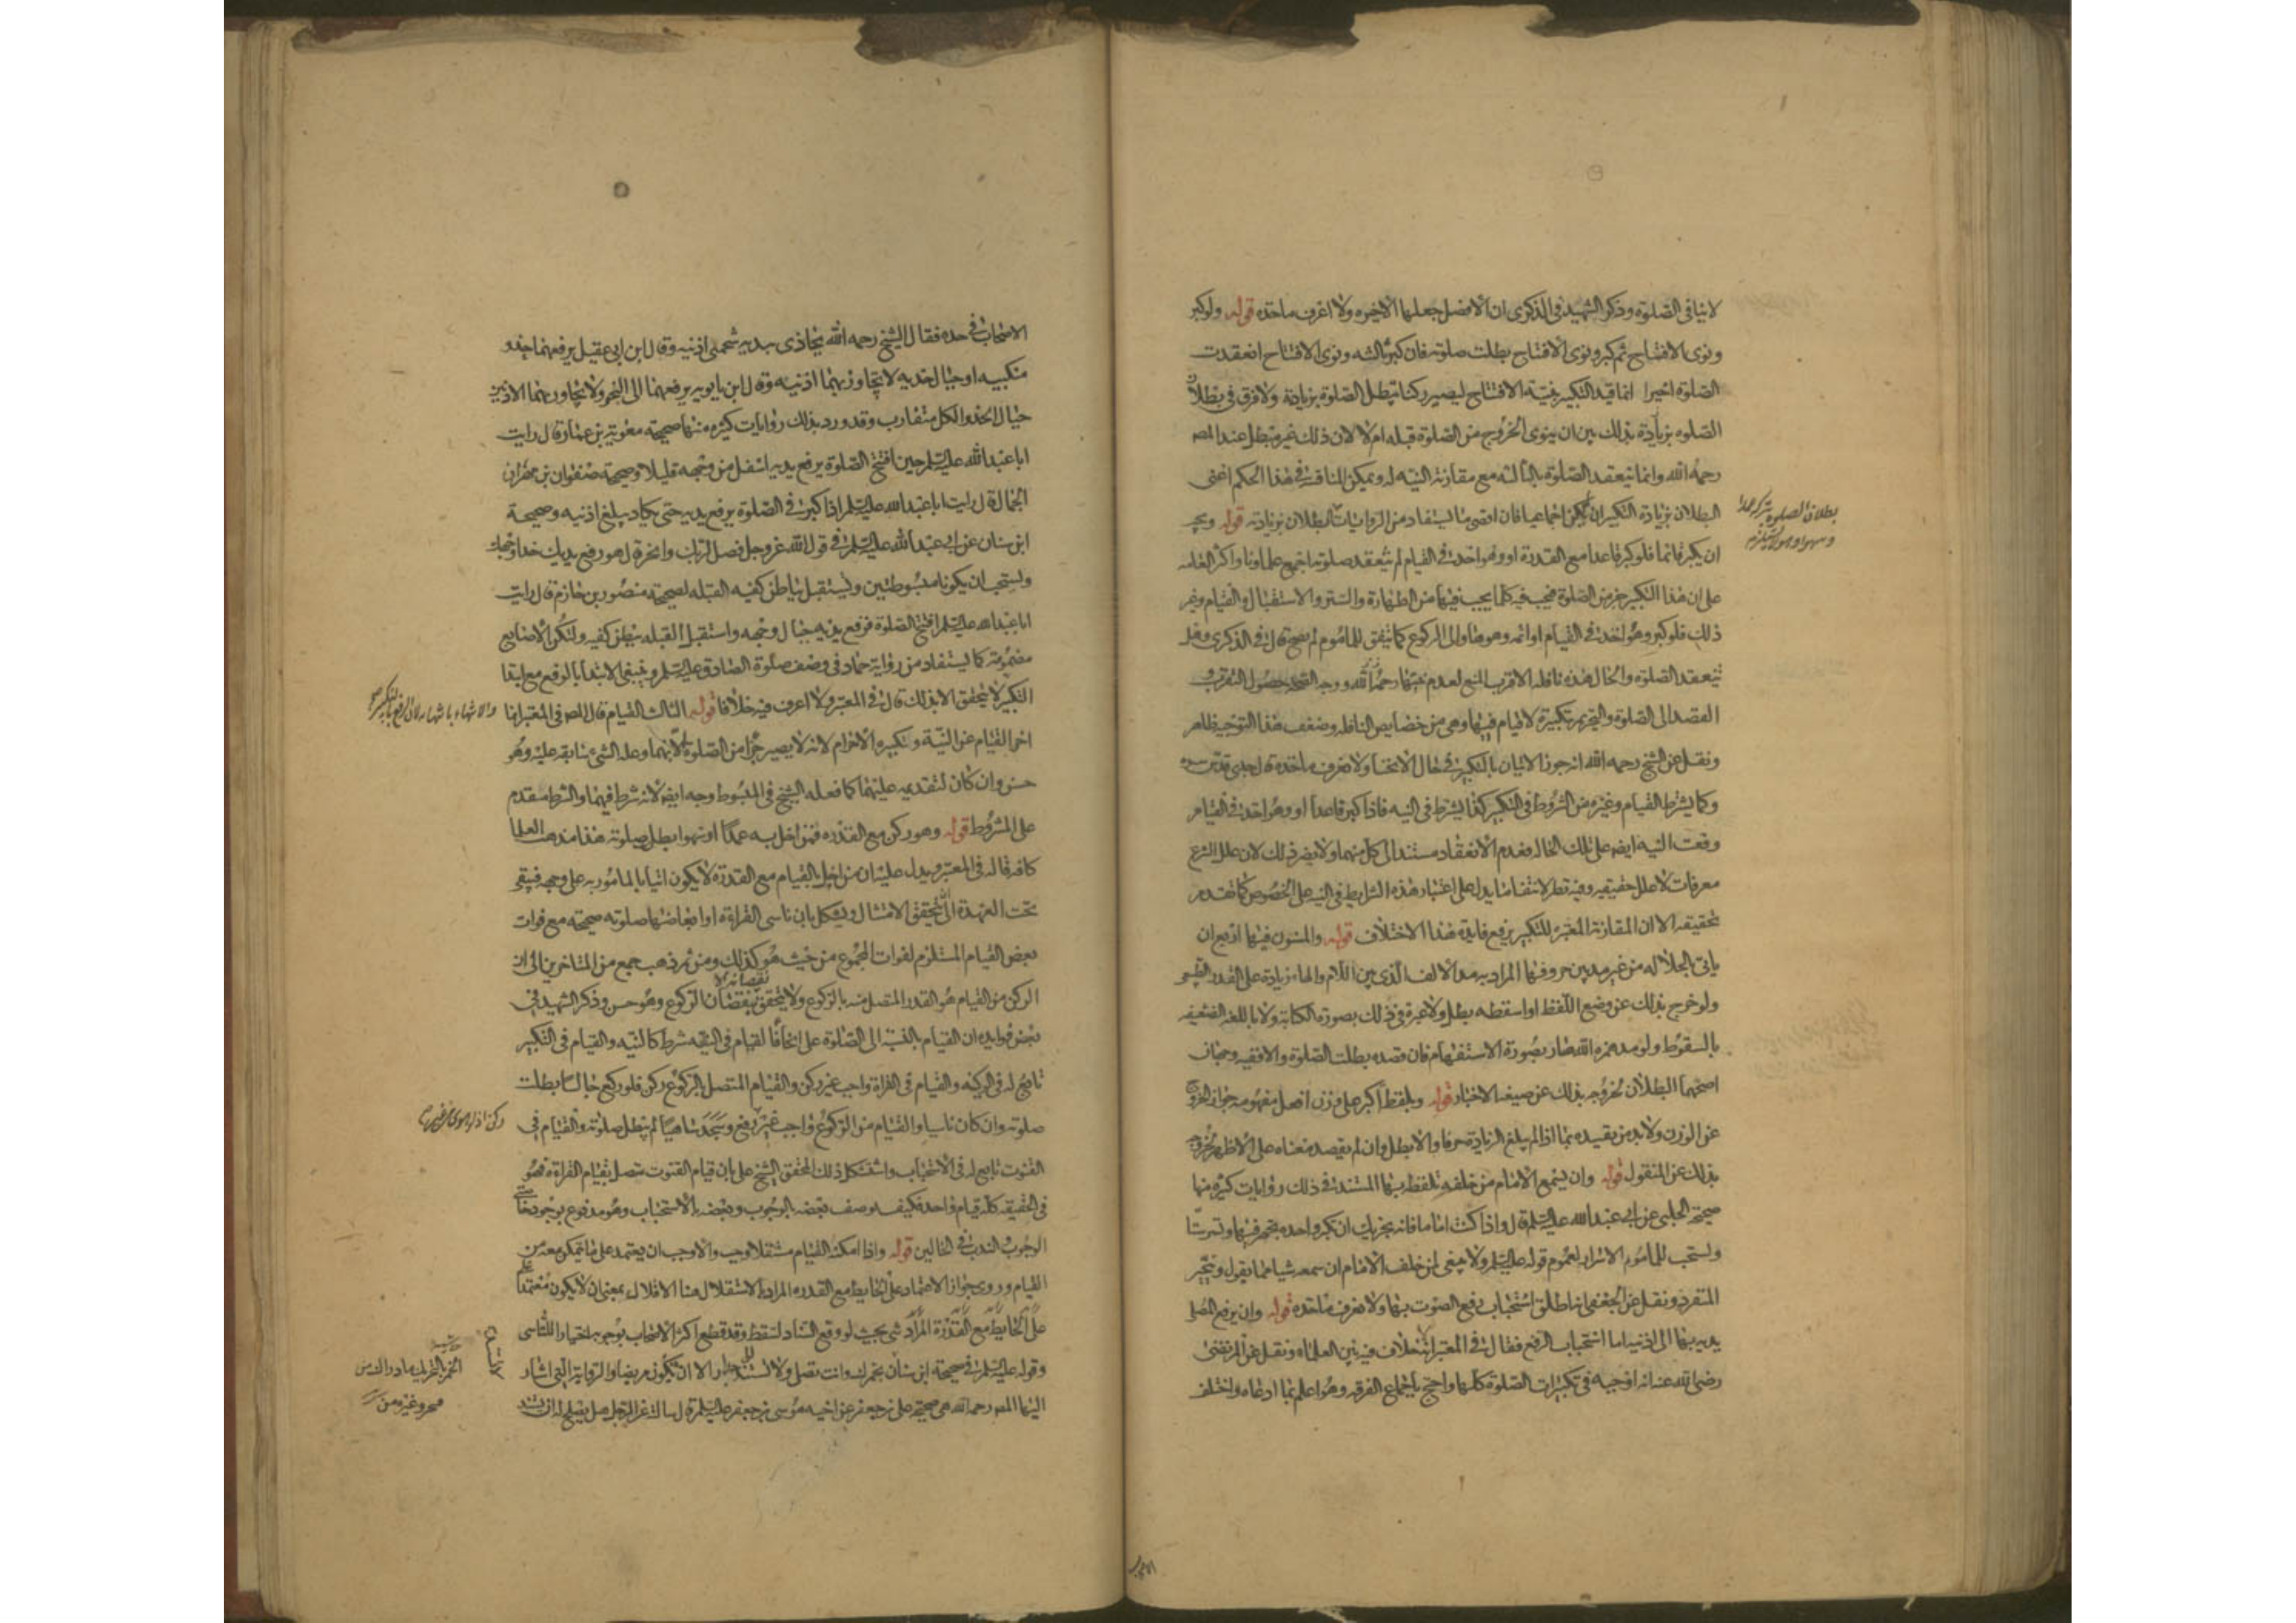 لاينافى الصلوة وذكر الشهيد فى الذكرى ان الافضل جعلها الاخيره ولا اعرف ماخذه قوله ولو كبر
ونوى الافتتاح ثم كبر ونوى الافتتاح بطلت صلوته فان كبر ثالثه ونوى الافتتاح انعقدت
الصلوة اخيرا انما قيد التكبير بنية الافتتاح ليصير ركنا تبطل الصلوة بزيادة ولا فرق فى بطلان
الصلوه بزيادة بذلك بين ان ينوى الخروج من الصلوة قبله ام لا لان ذلك غير مبطل عند المص
رحمه الله وانما تنعقد الصلوة بالثالثه مع مقارنة النيه له ويمكن المناقشة فى هذا الحكم اعنى
البطلان بزيادة التكبير ان لم يكن اجماعيا فان اقصى ما يستفاد من الروايات البطلان بزيادته قوله ويجب
ان يكبر قائما فلو كبر قاعدا مع القدرة او وهو اخذ فى القيام لم تنعقد صلوته اجمع علماؤنا واكثر العامه
على ان هذا التكبير جزء من الصلوة فيجب فيه كلما يجب فيها من الطهارة والستر والاستقبال والقيام وغير
ذلك فلو كبر وهو اخذ فى القيام او اتمه وهو هاو الى الركوع كما يتفق للماموم لم يصح قال فى الذكرى وهل
تنعقد الصلوة والحال هذه نافله الاقرب المنع لعدم نيتها رحمه الله ووجه الصحه حصول التقرب و
القصد الى الصلوة والتحريم بتكبيرة لا قيام فيها وهى من خصايص النافله وضعف هذا التوجيه ظاهر
ونقل عن الشيخ رحمه الله انه جوز الاتيان بالتكبير فى حال الانحناء ولا نعرف ماخذه قال جدى قدس سره
وكما يشترط القيام وغيره من الشروط فى التكبير كذا يشترط فى النيه فاذا كبر قاعدا او وهو اخذ فى القيام
وقعت النيه ايضا على تلك الحاله فعدم الانعقاد مستند الى كل منهما ولا يضر ذلك لان علل الشرع
معرفات لا علل حقيقيه وفيه نظر لانتفاء ما يدل على اعتبار هذه الشرايط فى النيه على الخصوص كما تقدم
تحقيقه الا ان المقارنة المعتبرة للتكبير يرفع فايدة هذا الاختلاف قوله والمسنون فيها اربع ان
ياتى بلفظ الجلاله من غير مد بين حروفها المراد به مد الالف الذى بين اللام والهاء زيادة على القدر الطبيعى
ولو خرج بذلك عن وضع اللفظ او اسقطه بطل ولا عبرة فى ذلك بصورة الكتابة ولا باللغة الضعيفه
بالسقوط ولو مد همزه الله صار بصورة الاستفهام فان قصده بطلت الصلوة والا ففيه وجهان
اصحهما البطلان لخروجه بذلك عن صيغه الاخبار قوله وبلفظ اكبر على وزن افعل مفهومه جواز الخروج
عن الوزن ولا بد من تقييده بما اذا لم يبلغ الزيادة حرفا والا بطل وان لم يقصد معناه على الاظهر لخروجه
بذلك عن المنقول قوله وان يسمع الامام من خلفه تلفظه بها المستند فى ذلك روايات كثيره منها
صحيحة الحلبى عن ابى عبد الله عليه السلم قال واذا كنت اماما فانه يجزيك ان تكبر واحده تجهر فيها وتسر ستا
ويستحب للماموم الاسرار لعموم قوله عليه السلم ولا ينبغى لمن خلف الامام ان يسمعه شيئا مما يقول ويتخير
المنفرد ونقل عن الجعفى انه اطلق استحباب رفع الصوت بها ولا نعرف ماخذه قوله وان يرفع المصلى
يديه بها الى اذنيه اما استحباب الرفع فقال فى المعتبر انه لا خلاف فيه بين العلماء ونقل عن المرتضى
رضى الله عنه انه اوجبه فى تكبيرات الصلوة كلها واحتج باجماع الفرقه وهو اعلم بما ادعاه واختلف
بطلان الصلوة بتركه عمدا
وسهوا وهو لا يستلزم
الاصحاب
الاصحاب فى حده فقال الشيخ رحمه الله يحاذى بيديه شحمتى اذنيه وقال ابن ابى عقيل يرفعهما حذو
منكبيه او حيال خديه لا يتجاوز بهما اذنيه وقال ابن بابويه يرفعهما الى النحر ولا يتجاوز بهما الاذنين
حيال الخد والكل متقارب وقد ورد بذلك روايات كثيره منها صحيحه معوية بن عمار قال رايت
ابا عبد الله عليه السلم حين افتتح الصلوة يرفع يديه اسفل من وجهه قليلا وصحيحة صفوان بن مهران
الجمال قال رايت ابا عبد الله عليه السلم اذا كبر فى الصلوة يرفع يديه حتى يكاد يبلغ اذنيه وصحيحة
ابن سنان عن ابى عبد الله عليه السلم فى قول الله عز وجل فصل لربك وانحر قال هو رفع يديك حذاء وجهك
ويستحب ان يكونا مبسوطتين ويستقبل بباطن كفيه القبله لصحيحة منصور بن حازم قال رايت
ابا عبد الله عليه السلم افتتح الصلوة فرفع يديه حيال وجهه واستقبل القبله ببطن كفيه ولتكن الاصابع
مضمومة كما يستفاد من رواية حماد فى وصف صلوة الصادق عليه السلم وينبغى الابتداء بالرفع مع ابتداء
التكبير لا يتحقق الا بذلك قال فى المعتبر ولا اعرف فيه خلافا قوله الثالث القيام قال المص فى المعتبر انما
اخر القيام عن النية وتكبيره الاحرام لانه لا يصير جزءا من الصلوة الا بهما وعله الشئ سابقه عليه وهو
حسن وان كان لتقديمه عليهما كما فعله الشيخ فى المبسوط وجه ايضا لانه شرط فيهما والشرط مقدم
على المشروط قوله وهو ركن مع القدره فمن اخل به عمدا او سهوا بطل صلوته هذا مذهب العلما
كافه قاله فى المعتبر ويدل عليه ان من اخل بالقيام مع القدرة لا يكون اتيا بالمامور به على وجهه فيبقى
تحت العهدة الى ان يتحقق الامتثال ويشكل بان ناسى القراءة او ابعاضها صلوته صحيحه مع فوات
بعض القيام المستلزم لفوات المجموع من حيث هو كذلك ومن ثم ذهب جمع من المتاخرين الى ان
الركن من القيام هو القدر المتصل منه بالركوع ولا يتحقق نقصانه الا بنقصان الركوع وهو حسن وذكر الشهيد فى
بعض فوايده ان القيام بالنسبة الى الصلوة على انحاء فالقيام فى النيه شرط كالنيه والقيام فى التكبير
تابع له فى الركنيه والقيام فى القراءة واجب غير ركن والقيام المتصل بالركوع ركن فلو ركع جالسا بطلت
صلوته وان كان ناسيا والقيام من الركوع واجب غير ركن اذ لو هوى من غير رفع وسجد ساهيا لم تبطل صلوته والقيام فى
القنوت تابع له فى الاستحباب واستشكل ذلك المحقق الشيخ على بان قيام القنوت متصل بقيام القراءة فهو
فى الحقيقه كله قيام واحد فكيف يوصف بعضه بالوجوب وبعضه بالاستحباب وهو مدفوع بوجود خاصتى
الوجوب والندب فى الحالين قوله واذا امكنه القيام مستقلا وجب والا وجب ان يعتمد على ما يتمكن معه من
القيام وروى جواز الاعتماد على الحايط مع القدره المراد بالاستقلال هنا الاقلال بمعنى ان لا يكون معتمدا
على شئ بحيث لو رفع السناد لسقط وقد قطع اكثر الاصحاب بوجوبه اختيارا للتاسى
وقوله عليه السلم فى صحيحة ابن سنان بخمرك وانت تصلى ولا تستند الى جدار الا ان تكون مريضا والرواية التى اشار
اليها المص رحمه الله هى صحيحة على بن جعفر عن اخيه موسى بن جعفر عليه السلم قال سالته عن الرجل هل يصلح له ان يستند
والانتهاء بانتهائه لان الرفع بالتكبير
ركن اذ لو هوى من غير
الخمر بالتحريك ما واراك من
شجر وغيره